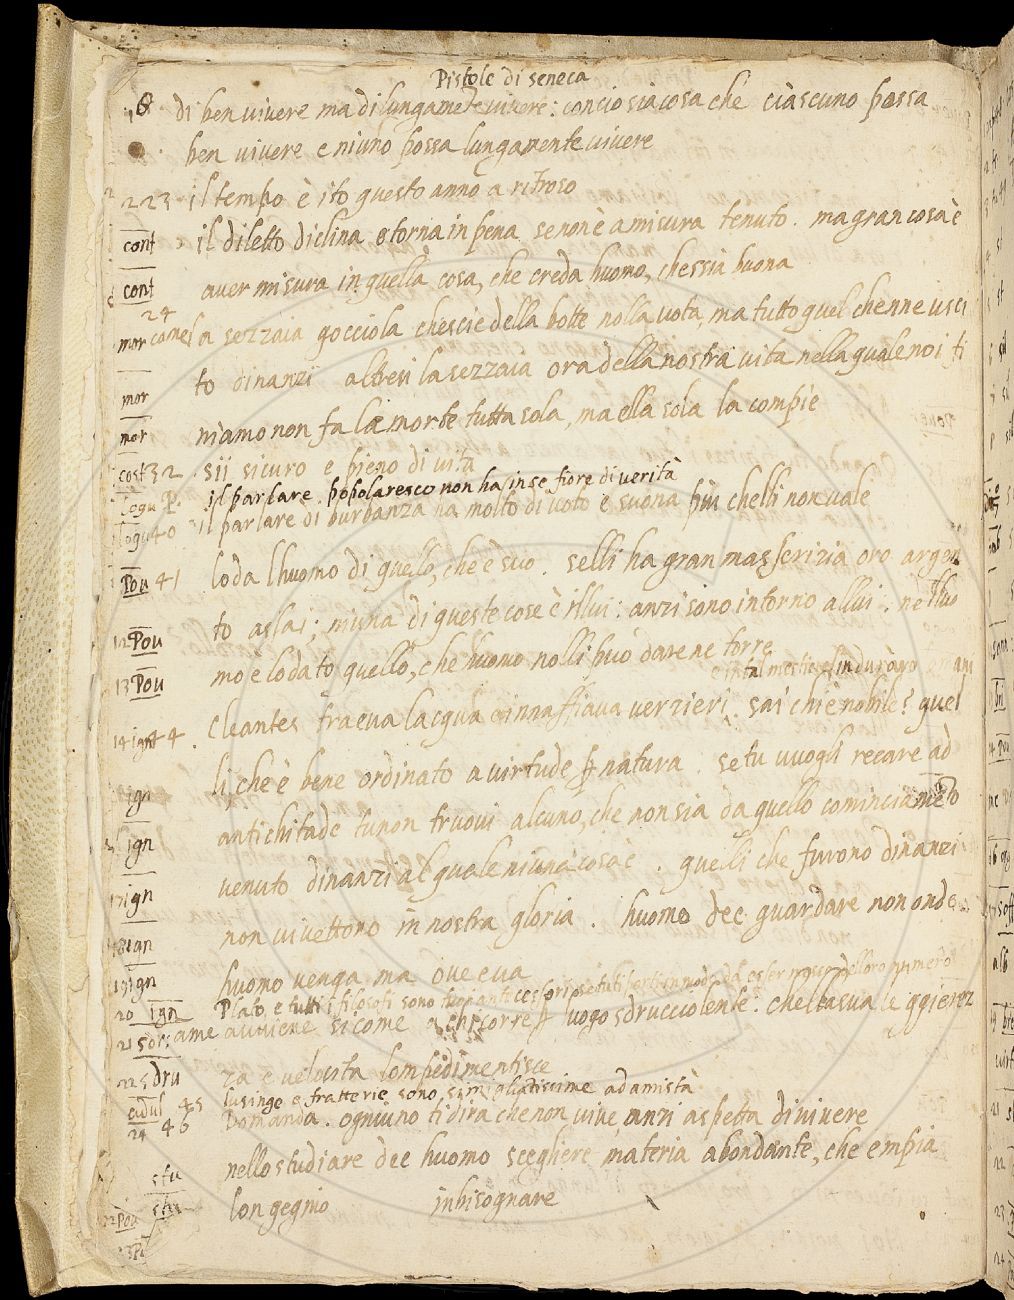 Pistole di seneca
8 di ben vivere ma di lungamēte vivere: concio sia cosa che ciascuno possa
ben vivere e niuno possa lungamente vivere
223 il tempo è ito questo anno a ritroso
cont il diletto diclina e torna in pena se non è a misura tenuto. ma gran cosa è
cont aver misura in quella cosa, che creda huomo, chessia buona
24
mor come la sezzaia gocciola chescie della botte nolla vota, ma tutto quel chenne usci
mor to dinanzi altresi la sezzaia ora della nostra vita nella quale noi fi
mor niamo non fa la morte tutta sola, ma ella sola la compie
cost 32 sii sicuro e pieno di vita
loqu P. il parlare popolaresco non ha in se fiore di verità
loqu 40 il parlare di burbanza ha molto di voto e suona più chelli non vale
Pou 41 loda lhuomo di quello, che è suo. selli ha gran masserizia oro argen
12 Pou to assai; niuna di queste cose è illui: anzi sono intorno allui. nelluo
13 Pou mo è lodato quello, che huomo nolli può dare ne torre
14 ign 44. Cleantes traeva lacqua e innaffiava verzieri. sai chi è nobile? quel
ign li che è bene ordinato a virtude p natura. se tu vuogli recare ad
ign antichitade tu non truovi alcuno, che non sia da quello cominciamēto
17 ign venuto dinanzi al quale niuna cosa è. quelli che furono dinanzi
18 ign non vivettono in nostra gloria. huomo dee guardare non onde
19 ign huomo venga ma ove e va
20 ign Plato, e tutti i filosofi sono tuoi antecessori se tu ti porti in modo da esser
21 sor: ame avviene sicome a chi corre p luogo sdrucciolente: chella sua leggierez
22 s dru za e velocita lompedimentisce
adul 45 lusinge e fratterie sono simigliatissime ad amistà
24 46 Domanda. ogniuno ti dira che non vive, anzi aspetta di vivere
stu nello studiare dee huomo scegliere materia abondante, che empia
stu longegnio inbisognare
22 Pou